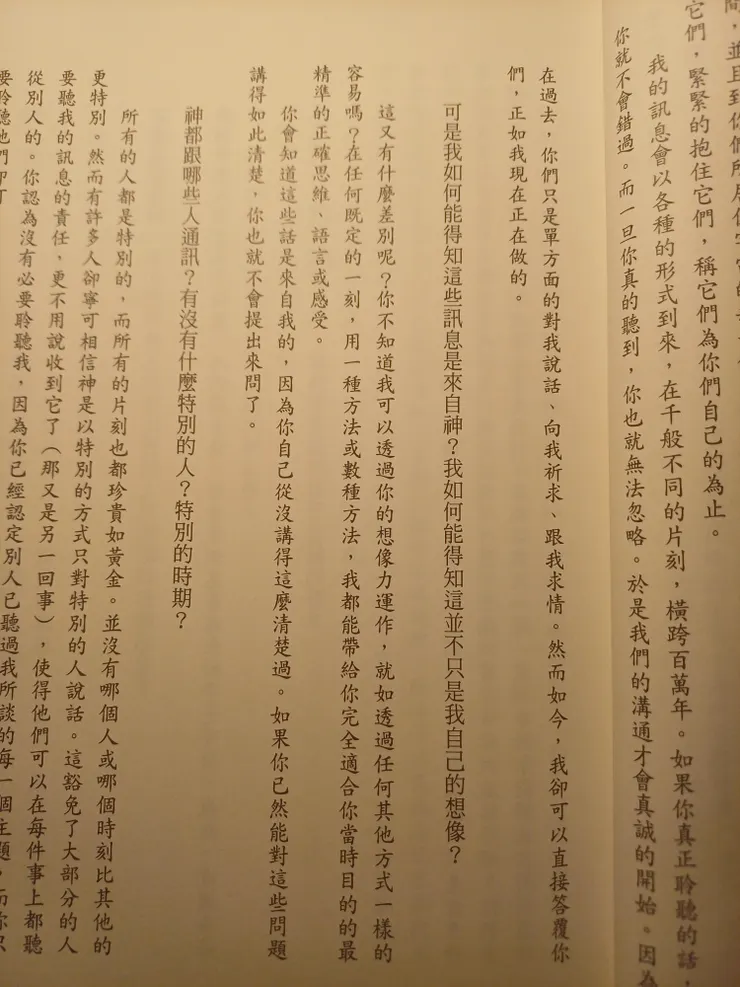 它們，緊緊的抱住它們，稱它們為你們自己的為止。
我的訊息會以各種的形式到來，在千般不同的片刻，橫跨百萬年。如果你真正聆聽的話，
你就不會錯過。而一旦你真的聽到，你也就無法忽略。於是我們的溝通才會真誠的開始。因為
在過去，你們只是單方面的對我說話、向我祈求、跟我求情。然而如今，我卻可以直接答覆你
們，正如我現在正在做的。
可是我如何能得知這些訊息是來自神？我如何能得知這並不只是我自己的想像？
這又有什麼差別呢？你不知道我可以透過你的想像力運作，就如透過任何其他方式一樣的
容易嗎？在任何既定的一刻，用一種方法或數種方法，我都能帶給你完全適合你當時目的的最
精準的正確思維、語言或感受。
你會知道這些話是來自我的，因為你自己從沒講得這麼清楚過。如果你已然能對這些問題
講得如此清楚，你也就不會提出來問了。
神都跟哪些人通訊？有沒有什麼特別的人？特別的時期？
所有的人都是特別的，而所有的片刻也都珍貴如黃金。並沒有哪個人或哪個時刻比其他的
更特別。然而有許多人卻寧可相信神是以特別的方式只對特別的人說話。這豁免了大部分的人
要聽我的訊息的責任，更不用說收到它了（那又是另一回事），使得他們可以在每件事上都聽
從別人的。你認為沒有必要聆聽我，因為你已經認定別人已聽過我所談的每一個主題，而你只